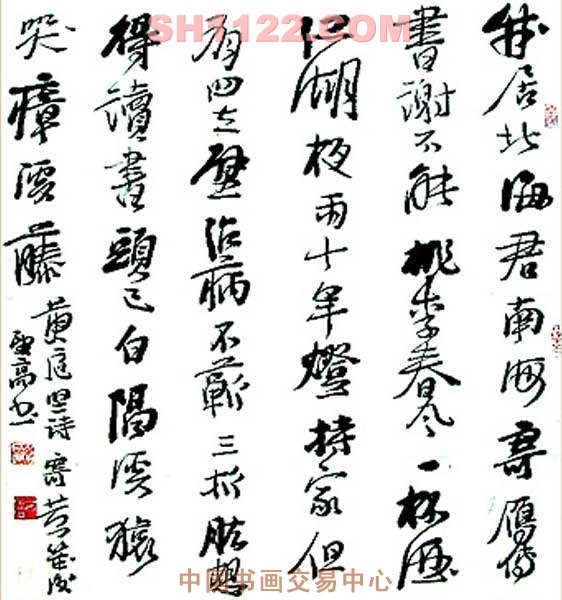 SH1122.COM
我居北海君南海寄雁傳
書謝不能桃李春風一杯酒
江湖夜雨十年燈持家但
有四立壁治病不蘄三折肱想
得讀書頭已白隔溪猿
哭瘴溪藤
黄庭坚诗寄黄幾復
高书
中国书画交易中心